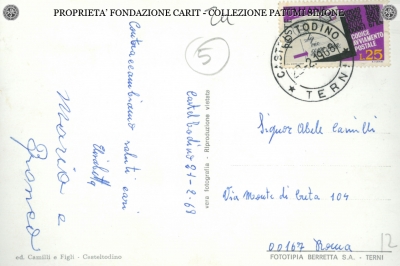 PROPRIETA' FONDAZIONE CARIT - COLLEZIONE PATUMI SIMONE
5
Contraccambiamo saluti cari
Elisabetta
Mario e
Franco
Casteltodino 21-8-69
vera fotografia - Riproduzione vietata
CASTELTODINO
TERNI
CODICE
AVVIAMENTO
POSTALE
L.25
Signor Abele Camilli
Via Monte di Creta 104
00167 Roma
12
ed. Camilli e Figli - Casteltodino
FOTOTIPIA BERRETTA S.A. - TERNI